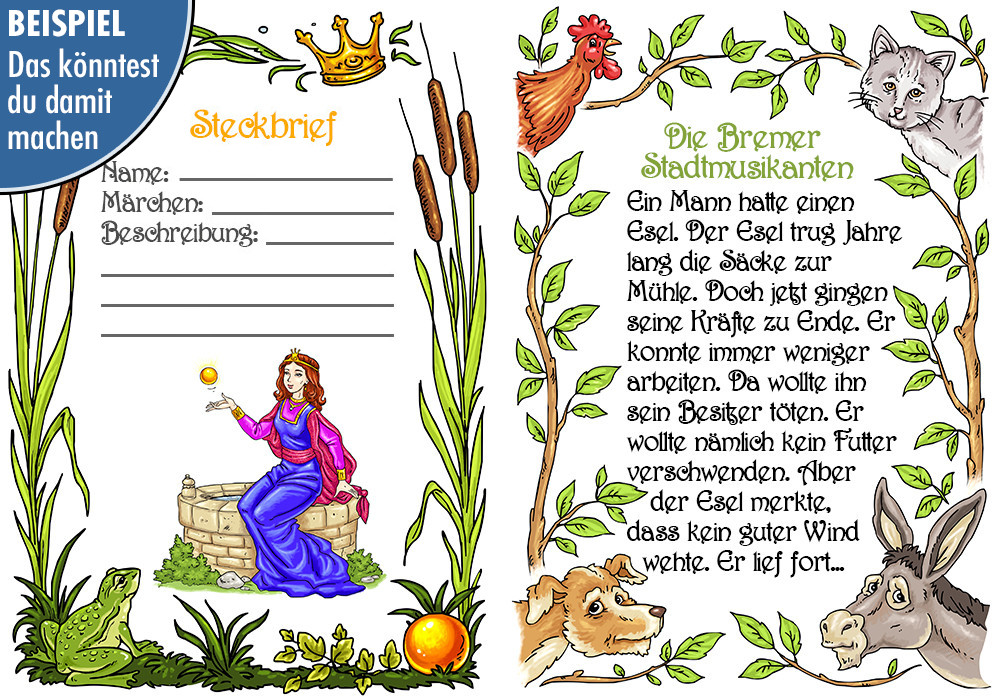 BEISPIEL
Das könntest
du damit
machen
Steckbrief
Name:
Märchen:
Beschreibung:
Die Bremer
Stadtmusikanten
Ein Mann hatte einen
Esel. Der Esel trug Jahre
lang die Säcke zur
Mühle. Doch jetzt gingen
seine Kräfte zu Ende. Er
konnte immer weniger
arbeiten. Da wollte ihn
sein Besitzer töten. Er
wollte nämlich kein Futter
verschwenden. Aber
der Esel merkte,
dass kein guter Wind
wehte. Er lief fort...